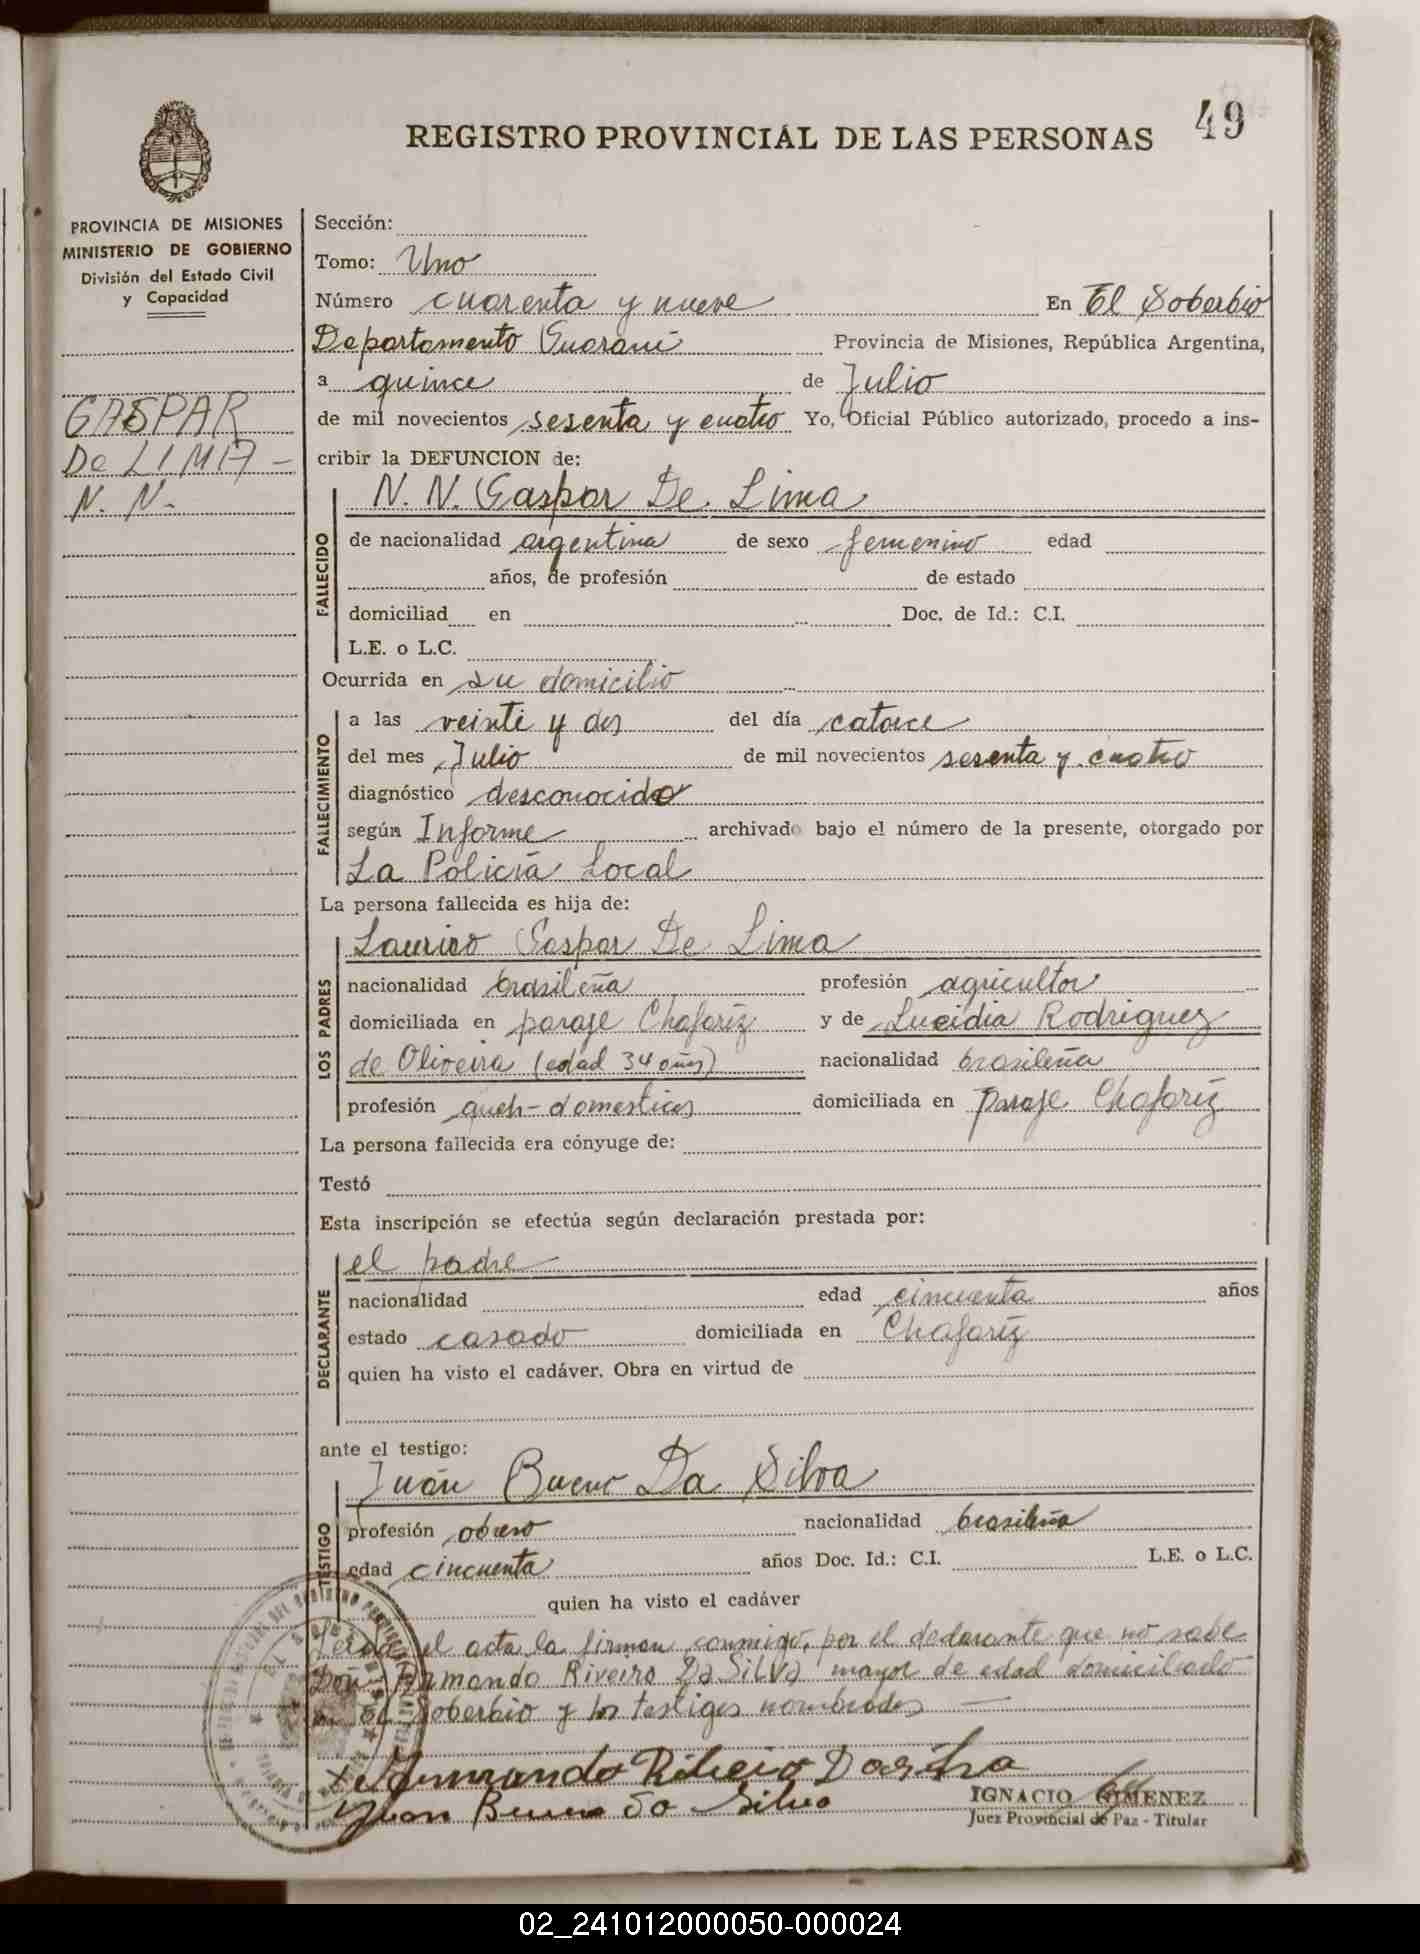 49
REGISTRO PROVINCIAL DE LAS PERSONAS
PROVINCIA DE MISIONES
MINISTERIO DE GOBIERNO
División del Estado Civil
y Capacidad
GASPAR
De LIMA -
N. N.
Sección:
Tomo: Uno
Número cuarenta y nueve En El Soberbio
Departamento Guaraní Provincia de Misiones, República Argentina,
a quince de Julio
de mil novecientos sesenta y cuatro Yo, Oficial Público autorizado, procedo a ins-
cribir la DEFUNCION de:
N. N. Gaspar De Lima
FALLECIDO
de nacionalidad argentina de sexo femenino edad
años, de profesión de estado
domiciliad en Doc. de Id.: C.I.
L.E. o L.C.
Ocurrida en su domicilio
FALLECIMIENTO
a las veinte y dos del día catorce
del mes Julio de mil novecientos sesenta y cuatro
diagnóstico desconocido
según Informe archivado bajo el número de la presente, otorgado por
La Policía Local
La persona fallecida es hija de:
LOS PADRES
Laurico Gaspar De Lima
nacionalidad brasileña profesión agricultor
domiciliada en paraje Chafaríz y de Lucidia Rodriguez
de Oliveira (edad 34 años) nacionalidad brasileña
profesión queh-domesticos domiciliada en paraje Chafaríz
La persona fallecida era cónyuge de:
Testó
Esta inscripción se efectúa según declaración prestada por:
DECLARANTE
el padre
nacionalidad edad cincuenta años
estado casado domiciliada en Chafaríz
quien ha visto el cadáver. Obra en virtud de
ante el testigo:
TESTIGO
Juán Bueno Da Silva
profesión obrero nacionalidad brasileña
edad cincuenta años Doc. Id.: C.I. L.E. o L.C.
quien ha visto el cadáver
el acta la firman conmigo, por el declarante que no sabe
Don Armando Riveiro Da SILVA mayor de edad domiciliado
en El Soberbio y los testigos nombrados
Armando Ribeiro Da Silva
Juan Bueno da Silva
IGNACIO GIMENEZ
Juez Provincial de Paz - Titular
02_241012000050-000024